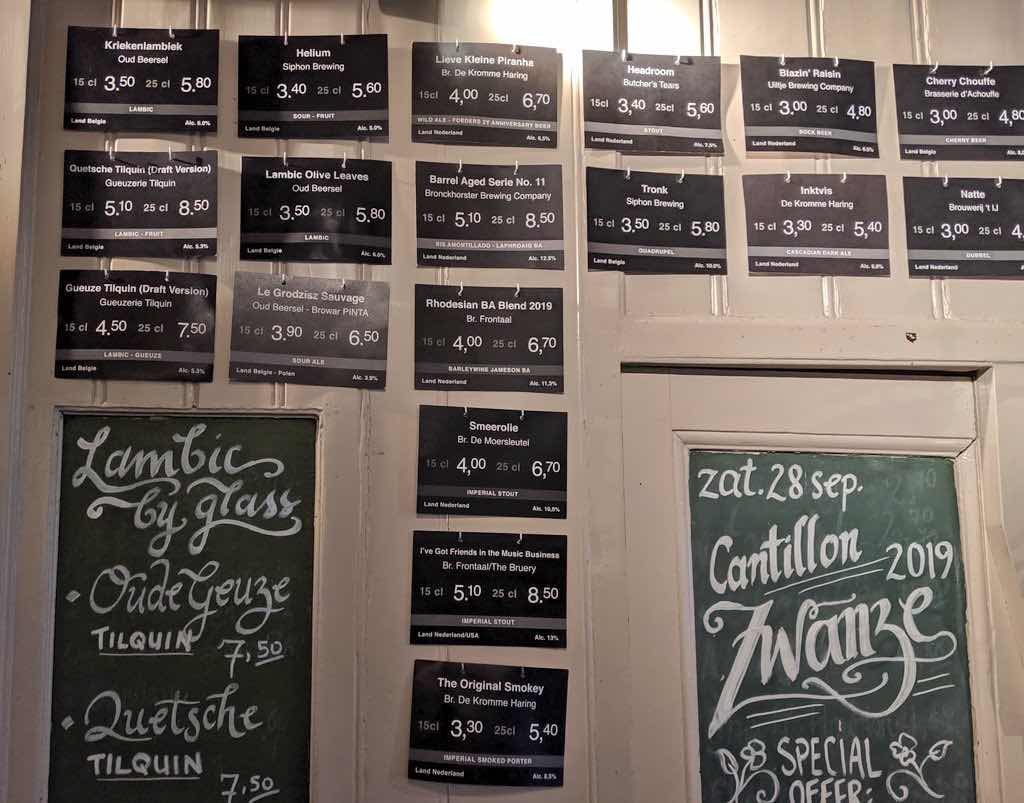 Kriekenlambiek
Oud Beersel
15 cl 3.50 25 cl 5.80
LAMBIC
Land Belgie Alc. 6.0%
Quetsche Tilquin (Draft Version)
Gueuzerie Tilquin
15 cl 5.10 25 cl 8.50
LAMBIC - FRUIT
Land Belgie Alc. 5.3%
Gueuze Tilquin (Draft Version)
Gueuzerie Tilquin
15 cl 4.50 25 cl 7.50
LAMBIC - GUEUZE
Land Belgie Alc. 5.3%
Helium
Siphon Brewing
15 cl 3.40 25 cl 5.60
SOUR - FRUIT
Land Belgie Alc. 5.0%
Lambic Olive Leaves
Oud Beersel
15 cl 3.50 25 cl 5.80
LAMBIC
Land Belgie Alc. 6.0%
Le Grodzisz Sauvage
Oud Beersel - Browar PINTA
15 cl 3.90 25 cl 6.50
SOUR ALE
Land Belgie - Polen Alc. 3.9%
Lieve Kleine Piranha
Br. De Kromme Haring
15cl 4,00 25cl 6,70
WILD ALE - FOEDERS 2Y ANNIVERSARY BEER
Land Nederland Alc. 6,5%
Barrel Aged Serie No. 11
Bronckhorster Brewing Company
15 cl 5.10 25 cl 8.50
RIS AMONTILLADO - LAPHROAIG BA
Land Nederland Alc. 12.5%
Rhodesian BA Blend 2019
Br. Frontaal
15 cl 4,00 25 cl 6,70
BARLEYWINE JAMESON BA
Land Nederland Alc. 11,3%
Smeerolie
Br. De Moersleutel
15 cl 4,00 25 cl 6,70
IMPERIAL STOUT
Land Nederland Alc. 10,0%
I've Got Friends in the Music Business
Br. Frontaal/The Bruery
15 cl 5.10 25 cl 8.50
IMPERIAL STOUT
Land Nederland/USA Alc. 13%
The Original Smokey
Br. De Kromme Haring
15cl 3,30 25cl 5,40
IMPERIAL SMOKED PORTER
Land Nederland Alc. 8,5%
Headroom
Butcher's Tears
15cl 3,40 25cl 5,60
STOUT
Land Nederland Alc. 7,5%
Tronk
Siphon Brewing
15 cl 3.50 25 cl 5.80
QUADRUPEL
Land Belgie Alc. 10.0%
Blazin' Raisin
Uiltje Brewing Company
15 cl 3.00 25 cl 4.80
BOCK BEER
Land Nederland Alc. 6.5%
Inktvis
De Kromme Haring
15 cl 3,30 25 cl 5,40
CASCADIAN DARK ALE
Land Nederland Alc. 6.8%
Cherry Chouffe
Brasserie d'Achouffe
15 cl 3,00 25 cl 4,80
CHERRY BEER
Land Belgie
Natte
Brouwerij 't IJ
15 cl 3,00 25 cl 4.
DUBBEL
Land Nederland
Lambic
by glass
• Oude Geuze
TILQUIN 7,50
• Quetsche
TILQUIN
7,50
zat. 28 sep.
Cantillon
2019
Zwanze
SPECIAL
OFFER: